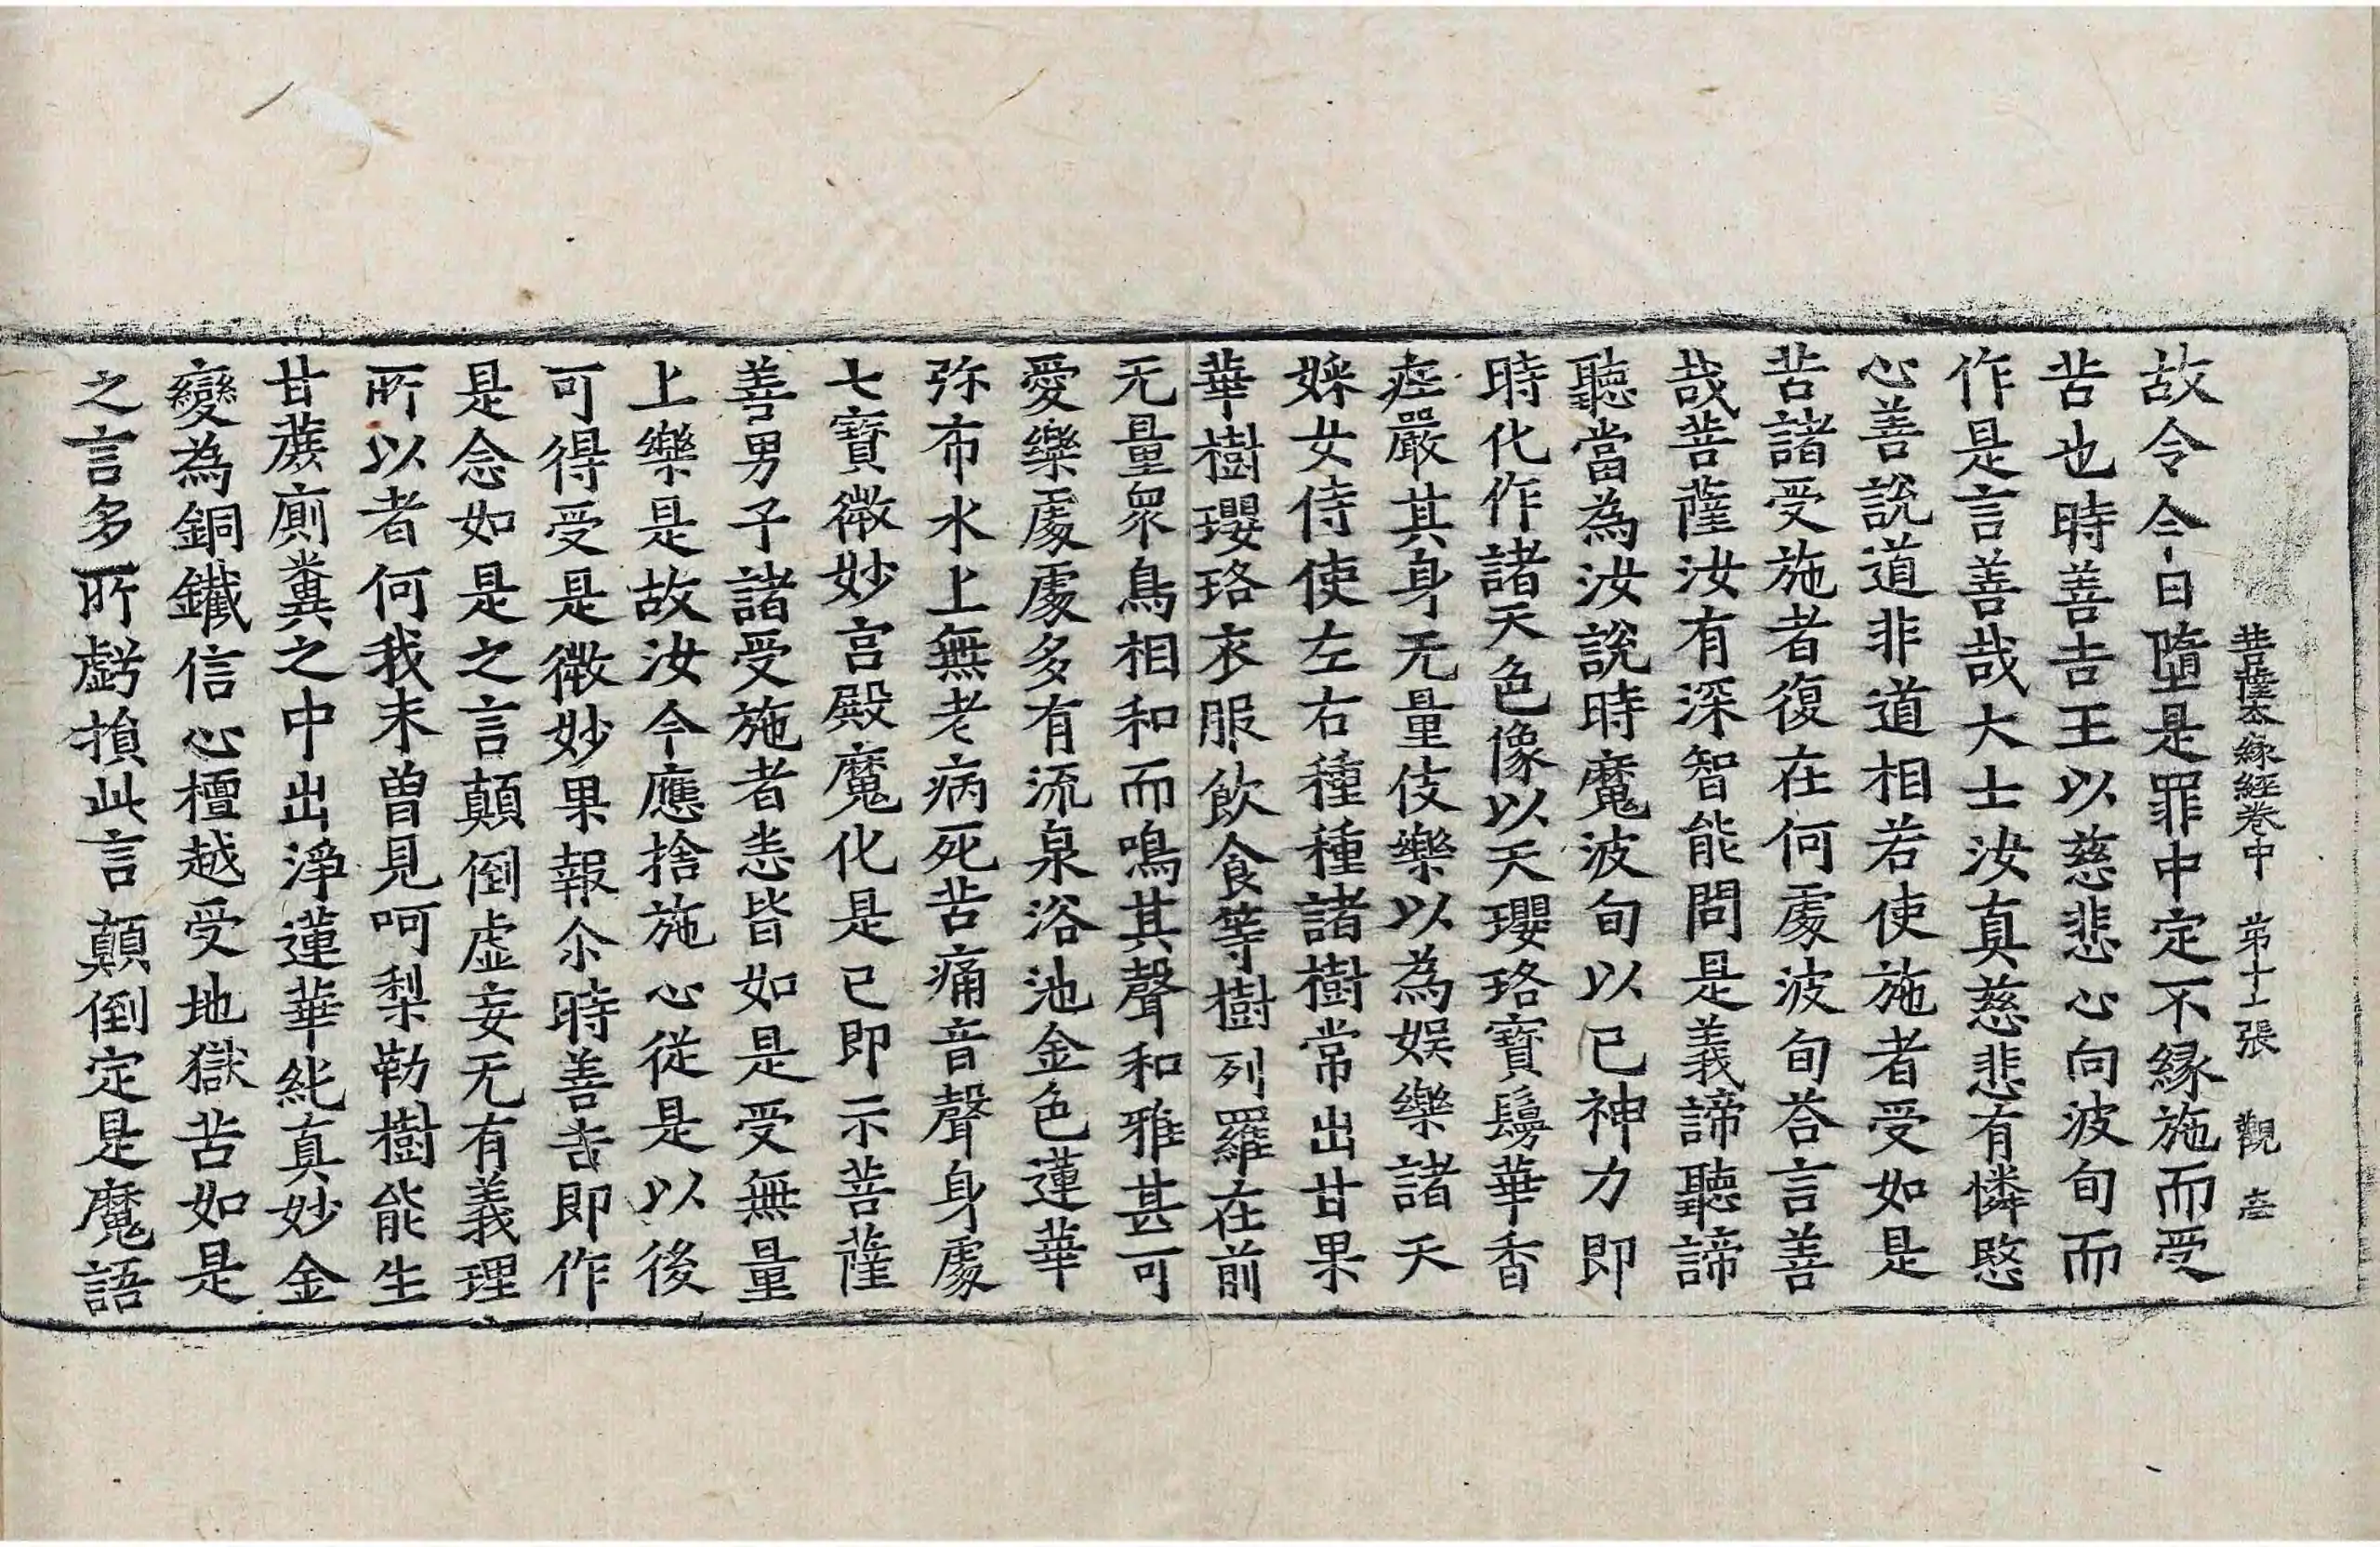 菩薩夲緣經卷中 第十二張 觀 岦
故令今日墮是罪中定不縁施而受
苦也時善吉王以慈悲心向波旬而
作是言善哉大士汝真慈悲有憐愍
心善說道非道相若使施者受如是
苦諸受施者復在何處波旬荅言善
哉菩薩汝有深智能問是義諦聽諦
聽當為汝說時魔波旬以已神力即
時化作諸天色像以天瓔珞寶鬘華香
㽵嚴其身无量伎樂以為娛樂諸天
婇女侍使左右種種諸樹常出甘果
華樹瓔珞衣服飲食等樹列羅在前
无量眾鳥相和而鳴其聲和雅甚可
愛樂處處多有流泉浴池金色蓮華
弥布水上無老病死苦痛音聲身處
七寶微妙宫殿魔化是已即示菩薩
善男子諸受施者恚皆如是受無量
上樂是故汝今應捨施心従是以後
可得受是微妙果報尒時善吉即作
是念如是之言顛倒虚妄无有義理
所以者何我未曽見呵梨勒樹能生
甘蔗廁糞之中出淨蓮華純真妙金
變為銅鐵信心檀越受地獄苦如是
之言多所虧損此言顛倒定是魔語